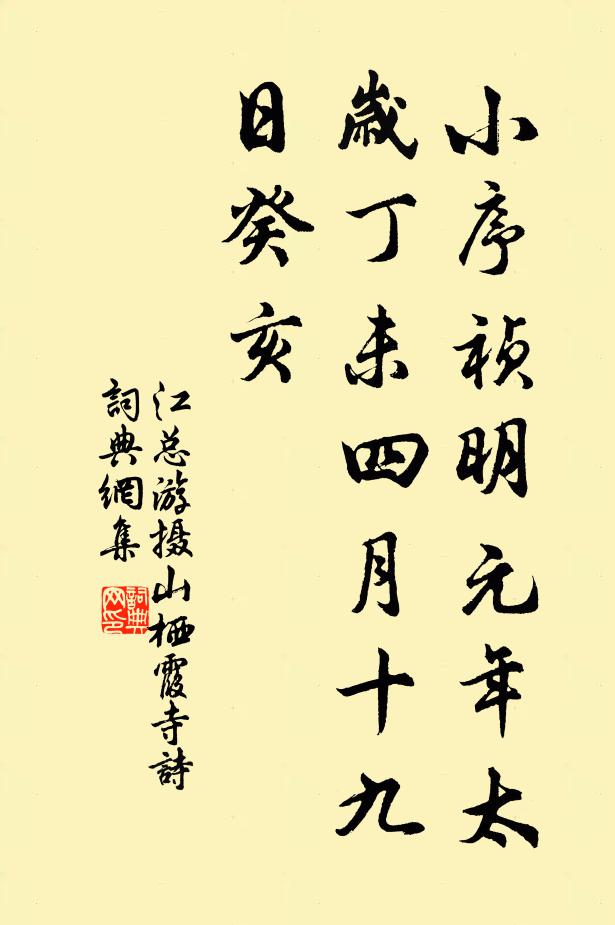 小序祯明元年太
歲丁未四月十九
日癸亥
江总游摄山栖霞寺詩
詞典網集
詞典网印